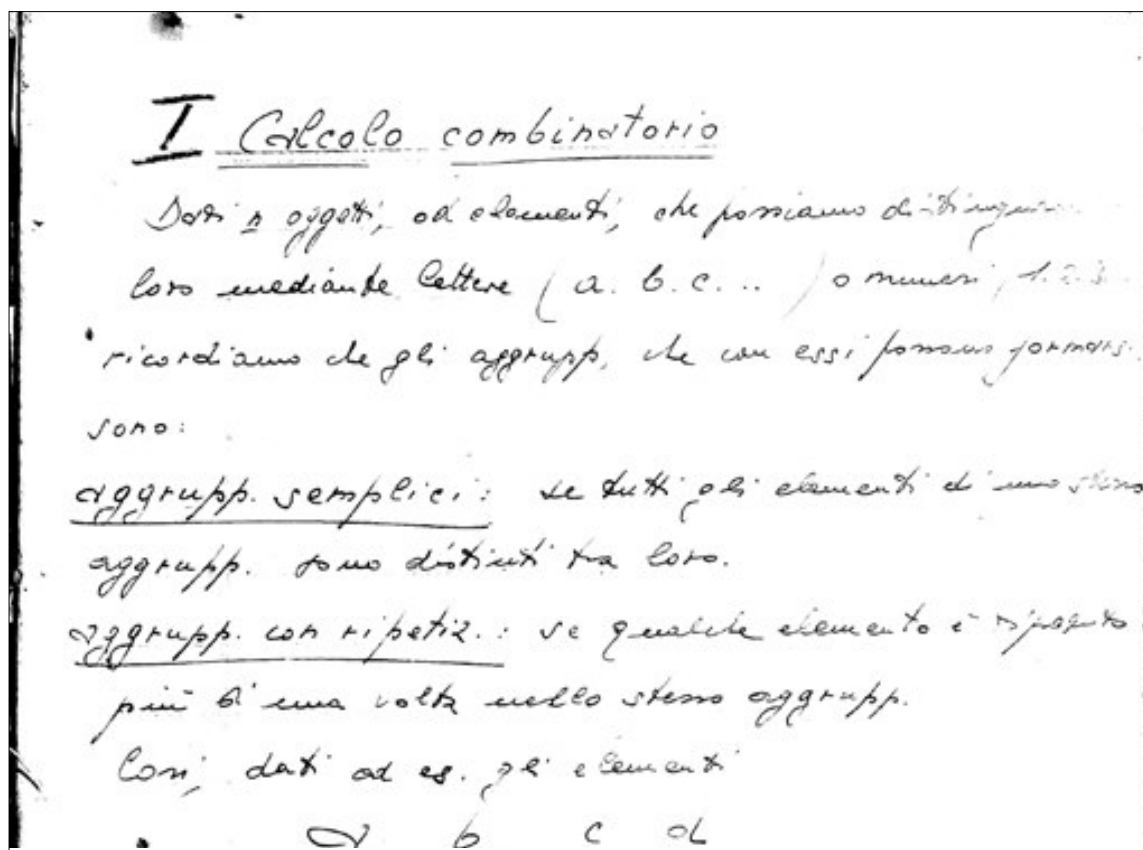 I Calcolo combinatorio
Dati n oggetti, od elementi, che possiamo
loro mediante lettere (a. b. c. .. ) o numeri 1. 2. 3.
ricordiamo che gli aggrupp. che con essi possono
sono:
aggrupp. semplici: se tutti gli elementi di uno
aggrupp. sono distinti tra loro.
aggrupp. con ripetiz.: se qualche elemento è
più di una volta nello stesso aggrupp.
Così, dati ad es. gli elementi
a b c d